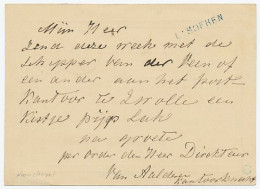 Mijn Heer
LEMMER
Zend deze week met de
Schipper van der Veen of
een ander aan het post-
Kantoor te Zwolle een
Kistje pijp Lak
na groete
per order den Heer Direkteur
Van Aalden
Kantoorknecht